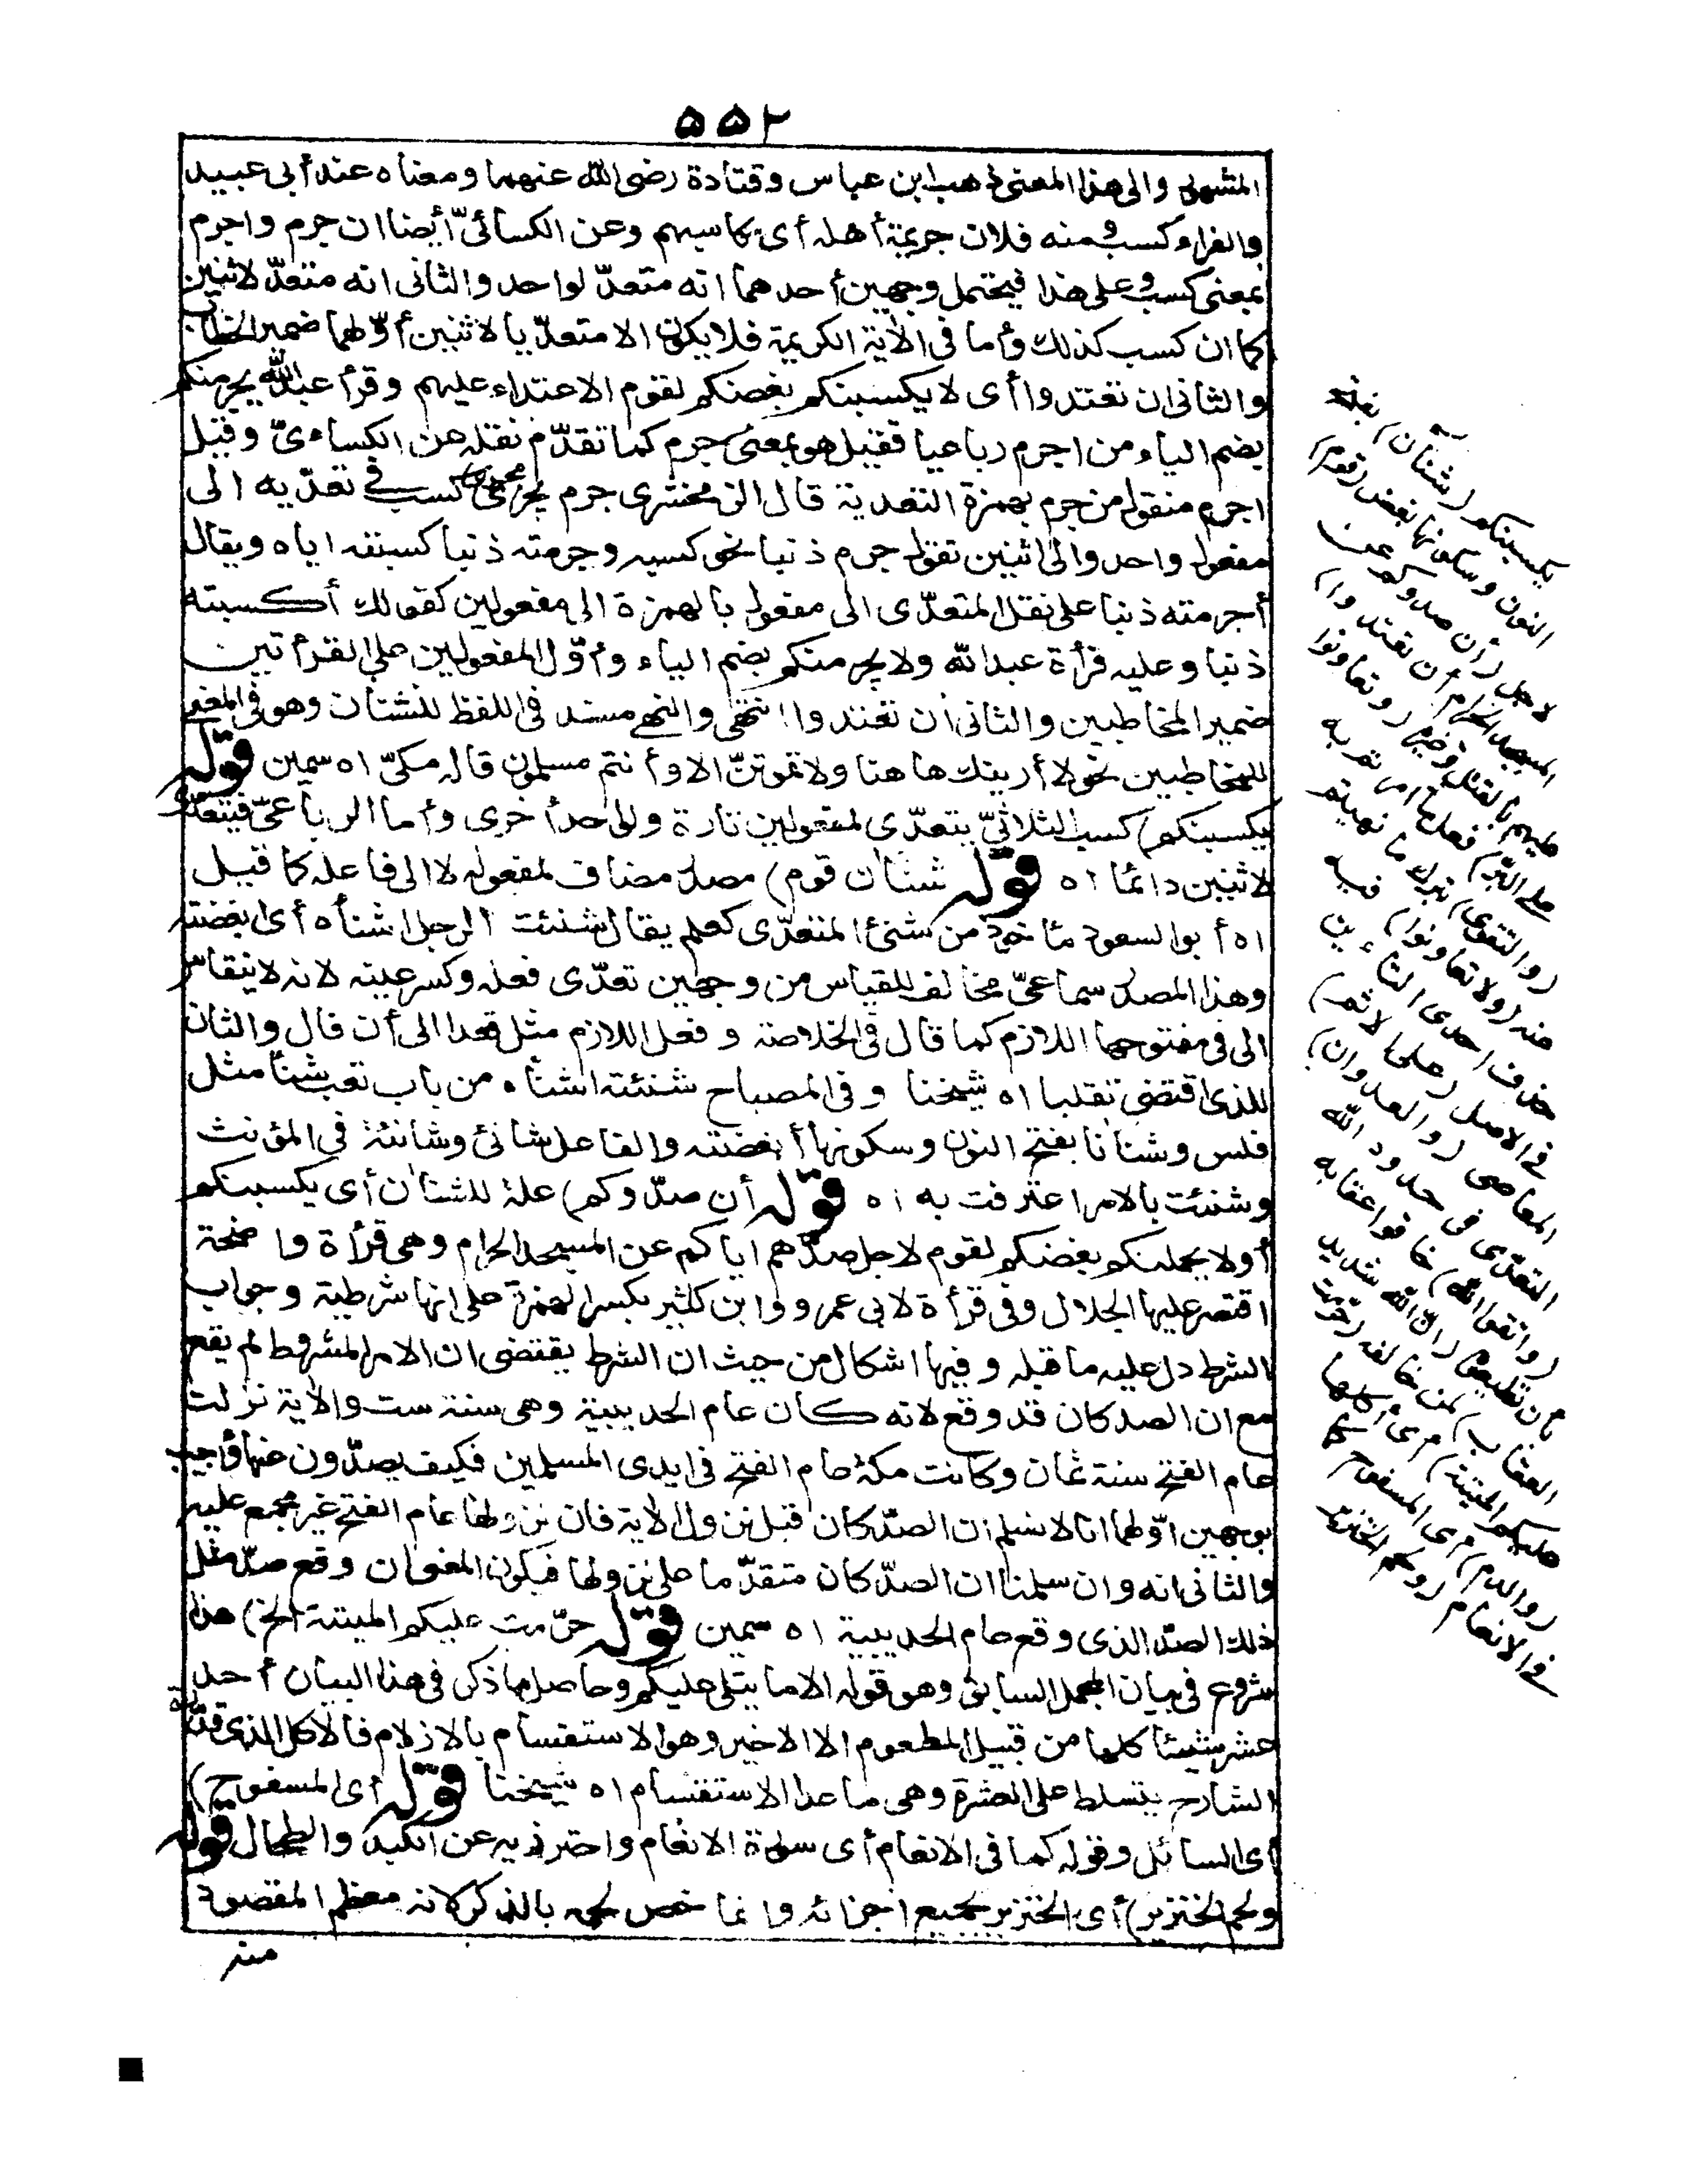 ۵۵۲
المشهور والى هذا المعنى ذهب ابن عباس وقتادة رضى الله عنهما ومعناه عند أبى عبيد
والفراء كسب ومنه فلان جريمة أهله أى كاسبهم وعن الكسائىّ أيضا ان جرم واجرم
بمعنى كسب وعلى هذا فيحتمل وجهين أحدهما انه متعدّ لواحد والثانى انه متعدّ لاثنين
كما ان كسب كذلك وأما فى الآية الكريمة فلا يكون الا متعدّيا لاثنين أوّلهما ضمير الخطاب
والثانى ان تعتدوا أى لا يكسبنكم بغضكم لقوم الاعتداء عليهم وقرأ عبد الله يجرمنكم
بضم الياء من اجرم رباعيا فقيل هو بمعنى جرم كما تقدّم نقله عن الكساءىّ وقيل
اجرم منقول من جرم بهمزة التعدية قال الزمخشرى جرم يجرى مجرى كسب فى تعدّيه الى
مفعول واحد والى اثنين تقول جرم ذنبا نحو كسبه وجرمته ذنبا كسبته اياه ويقال
أجرمته ذنبا على نقل المتعدّى الى مفعول بالهمزة الى مفعولين كقولك أكسبته
ذنبا وعليه قرأة عبد الله ولا يجرمنكم بضم الياء وأوّل المفعولين على القرأتين
ضمير المخاطبين والثانى أن تعتدوا انتهى والنهى مسند فى اللفظ للشنآن وهو فى المعنى
للمخاطبين نحو لا أرينك هاهنا ولا تموتنّ الا وأنتم مسلمون قاله مكىّ اه سمين قوله
يكسبنكم) كسب الثلاثىّ يتعدّى لمفعولين تارة ولواحد أخرى وأما الرباعىّ فيتعدّى
لاثنين دائما اه قوله شنآن قوم) مصدر مضاف لمفعوله لا الى فاعله كما قيل
اه أبو السعود مأخوذ من شنئ المتعدّى كعلم يقال شنئت الرجل اشنأه أى ابغضته
وهذا المصدر سماعىّ مخالف للقياس من وجهين تعدّى فعله وكسر عينه لانه لا ينقاس
الى فى مفتوحها اللازم كما قال فى الخلاصة وفعل اللازم مثل قعدا الى أن قال والثان
للذى اقتضى تقلبا اه شيخنا وفى المصباح شنئته اشنأه من باب تعب شنأ مثل
فلس وشنآنا بفتح النون وسكونها أبغضته والفاعل شانئ وشانئة فى المؤنث
وشنئت بالامر اعترفت به اه قوله أن صدّوكم) علة للشنآن أى يكسبنكم
أو لا يحملنكم بغضكم لقوم لاجل صدّهم اياكم عن المسجد الحرام وهى قرأة واضحة
اقتصر عليها الجلال وفى قرأة لابى عمرو وابن كثير بكسر الهمزة على انها شرطية وجواب
الشرط دل عليه ما قبله وفيها اشكال من حيث ان الشرط يقتضى ان الامر المشروط لم يقع
مع ان الصد كان قد وقع لانه كان عام الحديبية وهى سنة ست والآية نزلت
عام الفتح سنة ثمان وكانت مكة عام الفتح فى ايدى المسلمين فكيف يصدّون عنها وأجيب
بوجهين اوّلهما انا لا نسلم ان الصدّ كان قبل نزول الآية فان نزولها عام الفتح غير مجمع عليه
والثانى انه وان سلمنا ان الصدّ كان متقدّما على نزولها فيكون المعنى ان وقع صدّ مثل
ذلك الصدّ الذى وقع عام الحديبية اه سمين قوله حرّمت عليكم الميتة الخ) هذا
شروع فى بيان المجمل السابق وهو قوله الا ما يتلى عليكم وحاصل ما ذكر فى هذا البيان أحد
عشر شيئا كلها من قبيل المطعوم الا الاخير وهو الاستقسام بالازلام فالاكل الذى قدّره
الشارح يتسلط على العشرة وهى ما عدا الاستقسام اه شيخنا قوله أى المسفوح)
أى السائل وقوله كما فى الانعام أى سورة الانعام واحترز به عن الكبد والطحال قوله
ولحم الخنزير) أى الخنزير بجميع اجزائه وانما خص لحمه بالذكر لانه معظم المقصود
منه
يكسبنكم (شنآن) بفتح
النون وسكونها بغض (قوم)
لاجل (أن صدوكم عن
المسجد الحرام أن تعتدوا)
عليهم بالقتل وغيره (وتعاونوا
على البرّ) فعل ما امرتم به
(والتقوى) بترك ما نهيتم
عنه (ولا تعاونوا) فيه
حذف احدى التاءين
فى الاصل (على الاثم)
المعاصى (والعدوان)
التعدّى فى حدود الله
(واتقوا الله) خافوا عقابه
بأن تطيعوه (انّ الله شديد
العقاب) لمن خالفه (حرّمت
عليكم الميتة) أى أكلها
(والدم) أى المسفوح كما
فى الانعام (ولحم الخنزير